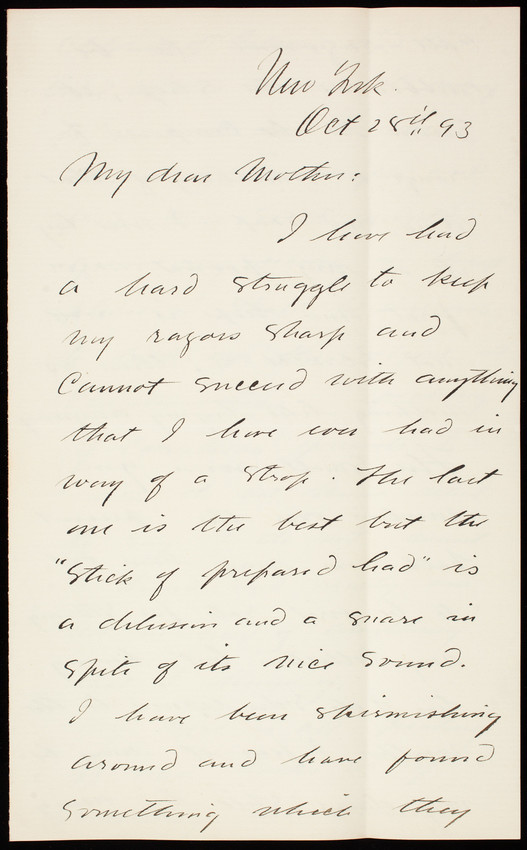 New York.
Oct 28th 93
My dear Mother:
I have had
a hard struggle to keep
my razors sharp and
Cannot succeed with anything
that I have ever had in
way of a strop. The last
one is the best but the
"Stick of prepared lead" is
a delusion and a snare in
spite of its nice sound.
I have been skirmishing
around and have found
something which they